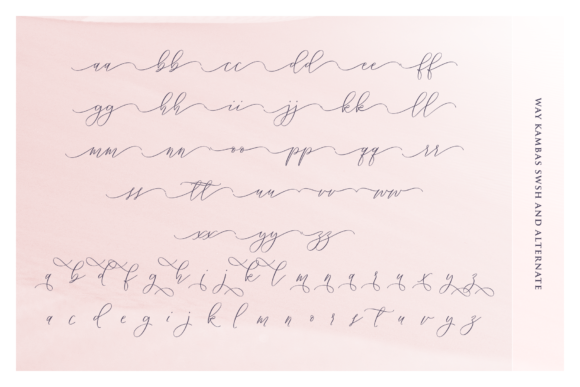 aa bb cc dd ee ff
gg hh ii jj kk ll
mm nn oo pp qq rr
ss tt uu vv ww
xx yy zz
a b d f g h i j k l m n q r u x y z
a c d e g i j k l m n o r s t u v y z
WAY KAMBAS SWSH AND ALTERNATE